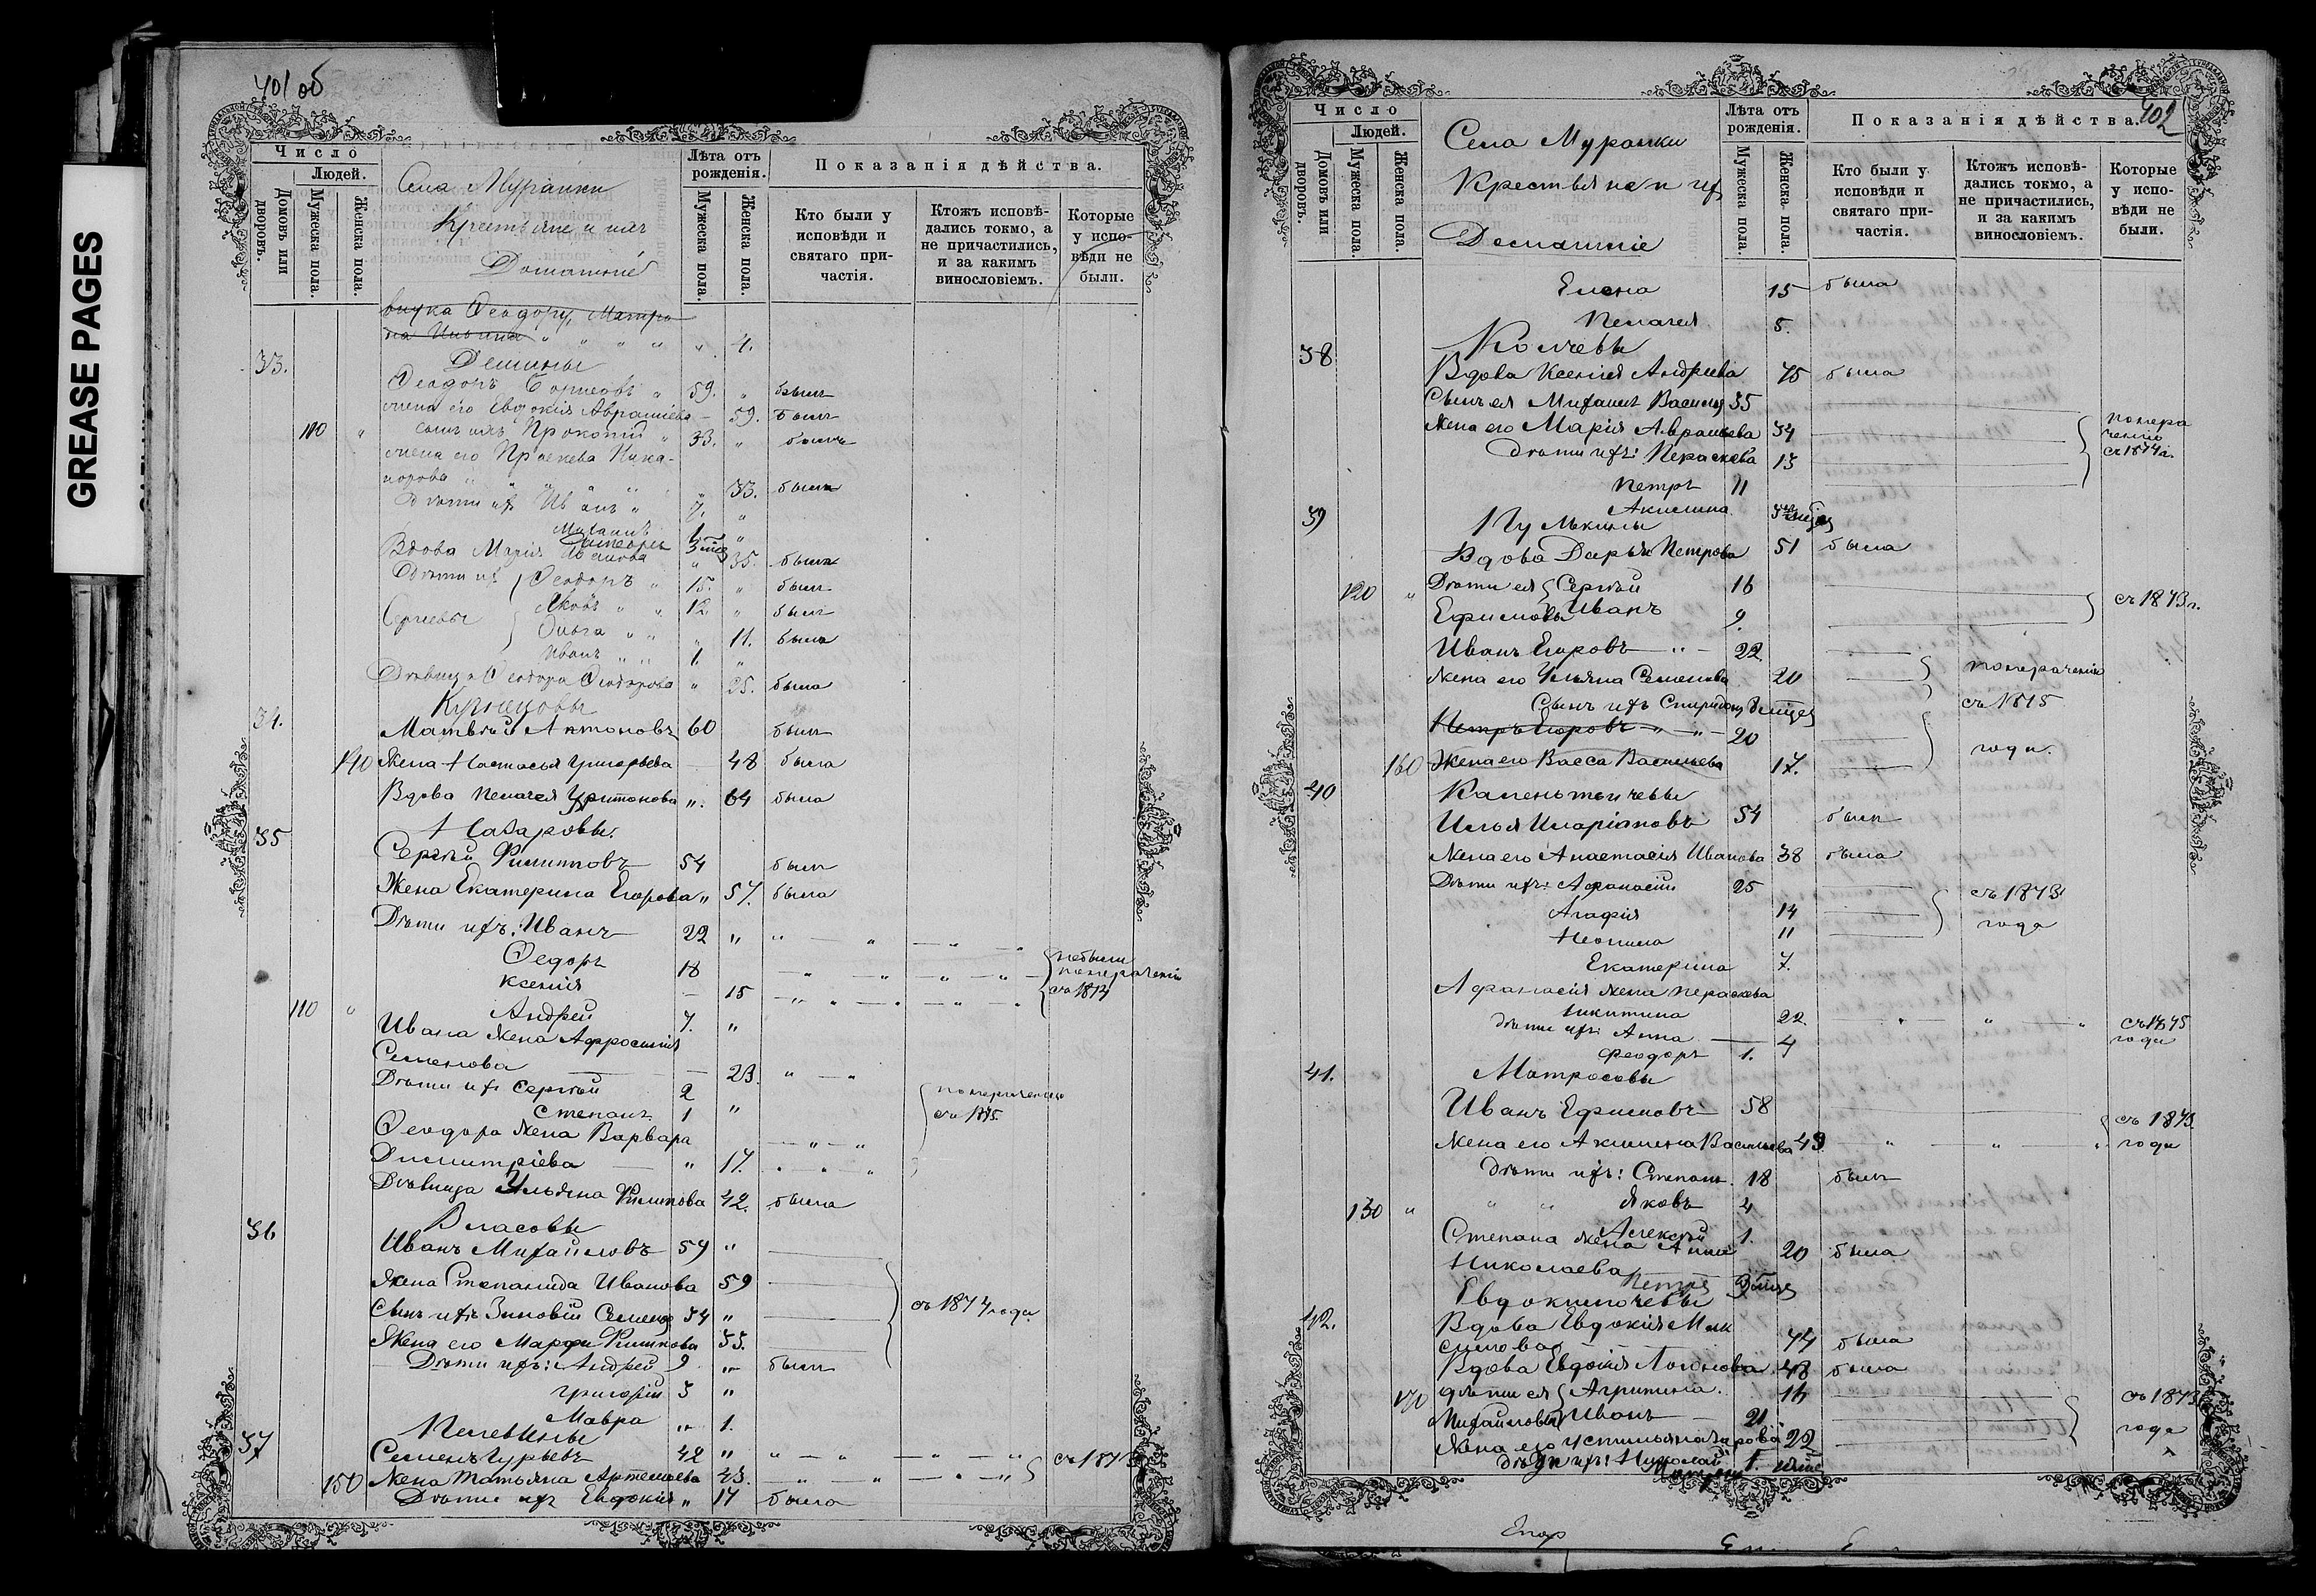 GREASE PAGES
401 об
Число
Людей.
Домовъ или дворовъ.
Мужеска пола.
Женска пола.
Села Муранки
Крестьяне и ихъ
Домашніе
Лѣта отъ рожденія.
Мужеска пола.
Женска пола.
Показанія дѣйства.
Кто были у исповѣди и святаго причастія.
Ктожъ исповѣдались токмо, а не причастились, и за какимъ винословіемъ.
Которые у исповѣди не были.
внука Ѳеодору, Матро
на 4.
33. Демины
Ѳеодоръ Борисовъ 59. былъ
жена его Евдокія Авраміева 59. была
110 сынъ ихъ Прокопій 33. былъ
жена его Праскева Ника-
норова 33. была
Дѣти ихъ Иванъ 7.
Михаилъ 1
Вдова Марія Иванова 35. была
Дѣти их Ѳеодоръ 15. былъ
Яковъ 12. былъ
Сергіевы Ольга 11. была
Иванъ 1.
Дѣвица Ѳеодора Ѳеодорова 25. была
34. Кузнецовы
Матвѣй Антоновъ 60 былъ
140 Жена Настасья Григорьева 48 была
Вдова Пелагея Харитонова 64 была
35 Назаровы
Сергѣй Филипповъ 54 былъ
Жена Екатерина Егорова 57. была
Дѣти ихъ: Иванъ 22
Ѳедоръ 18 небыли
Ксенія 15 понераченію съ 1874
110 Андрей 7.
Ивана жена Афросинія
Семенова 23.
Дѣти ихъ Сергѣй 2 понераченію
Степанъ 1 съ 1875.
Ѳеодора жена Варвара
Димитріева 17.
Дѣвица Ульяна Филиппова 42. была
36 Власовы
Иванъ Михаиловъ 59
Жена Степанида Иванова 59
Сынъ ихъ Зиновій Семенов 34 съ 1874 года
Жена его Марфа Филипова 35.
Дѣти ихъ: Андрей 9 былъ
Григорій 3
Мавра 1.
37 Пелевины
Семенъ Гурьевъ 42 съ 1873
150 Жена Татьяна Артемьева 43.
Дѣти ихъ Евдокія 14 была
402
Число
Людей.
Домовъ или дворовъ.
Мужеска пола.
Женска пола.
Села Муранки
Крестьяне и их
Домашніе
Лѣта отъ рожденія.
Мужеска пола.
Женска пола.
Показанія дѣйства.
Кто были у исповѣди и святаго причастія.
Ктожъ исповѣдались токмо, а не причастились, и за какимъ винословіемъ.
Которые у исповѣди не были.
Елена 15 была
Пелагея 5.
38
Вдова Ксенія Андреева 75 была
Сынъ ея Михаилъ Васильев 35
Жена его Марія Авраамьева 34 понера
ченію
Дѣти ихъ: Параскева 13 съ 1874 г.
Петръ 11
Акилина
39
Вдова Дарья Петрова 51 была
120 Дѣти ея Сергѣй 16 съ 1873 г.
Ефимовы Иванъ 9.
Иванъ Егоровъ 22
Жена его Ульяна Семенова 20 понераченію
Сынъ ихъ Спиридонъ съ 1875
Петръ Егоровъ 20 года.
160 Жена его Васса Васильева 17.
40
Илья Иларіоновъ 54 былъ
Жена его Анастасія Иванова 38 была
Дѣти ихъ: Афанасій 25 съ 1873
Агафія 14 года
Неонила 11
Екатерина 7.
Афанасія жена Параскева
Никитина 22 съ 1875
дѣти ихъ: Анна 4 года
Ѳеодоръ 1.
41. Матросовы
Иванъ Ефимовъ 58 съ 1873.
Жена его Акилина Васильева 49 года
Дѣти ихъ: Степанъ 18 былъ
130 Яковъ 4
Алексѣй 1.
Степана жена Анна 20 была
Николаева
Петръ
Евдокимочевы
42. Вдова Евдокія Мак
симова 74 была
Вдова Евдокія 48 была
170 дѣти ея Агрипина 14 съ 1873
Михайловы Иванъ 21 года
Жена его 22
дѣти ихъ: Николай 1.